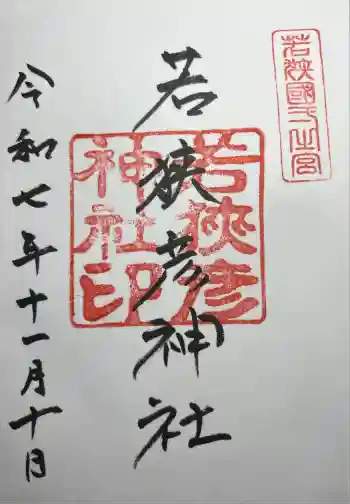 若狭國一之宮
若狭彦神社
若狹彦神社印
令和七年十一月十日